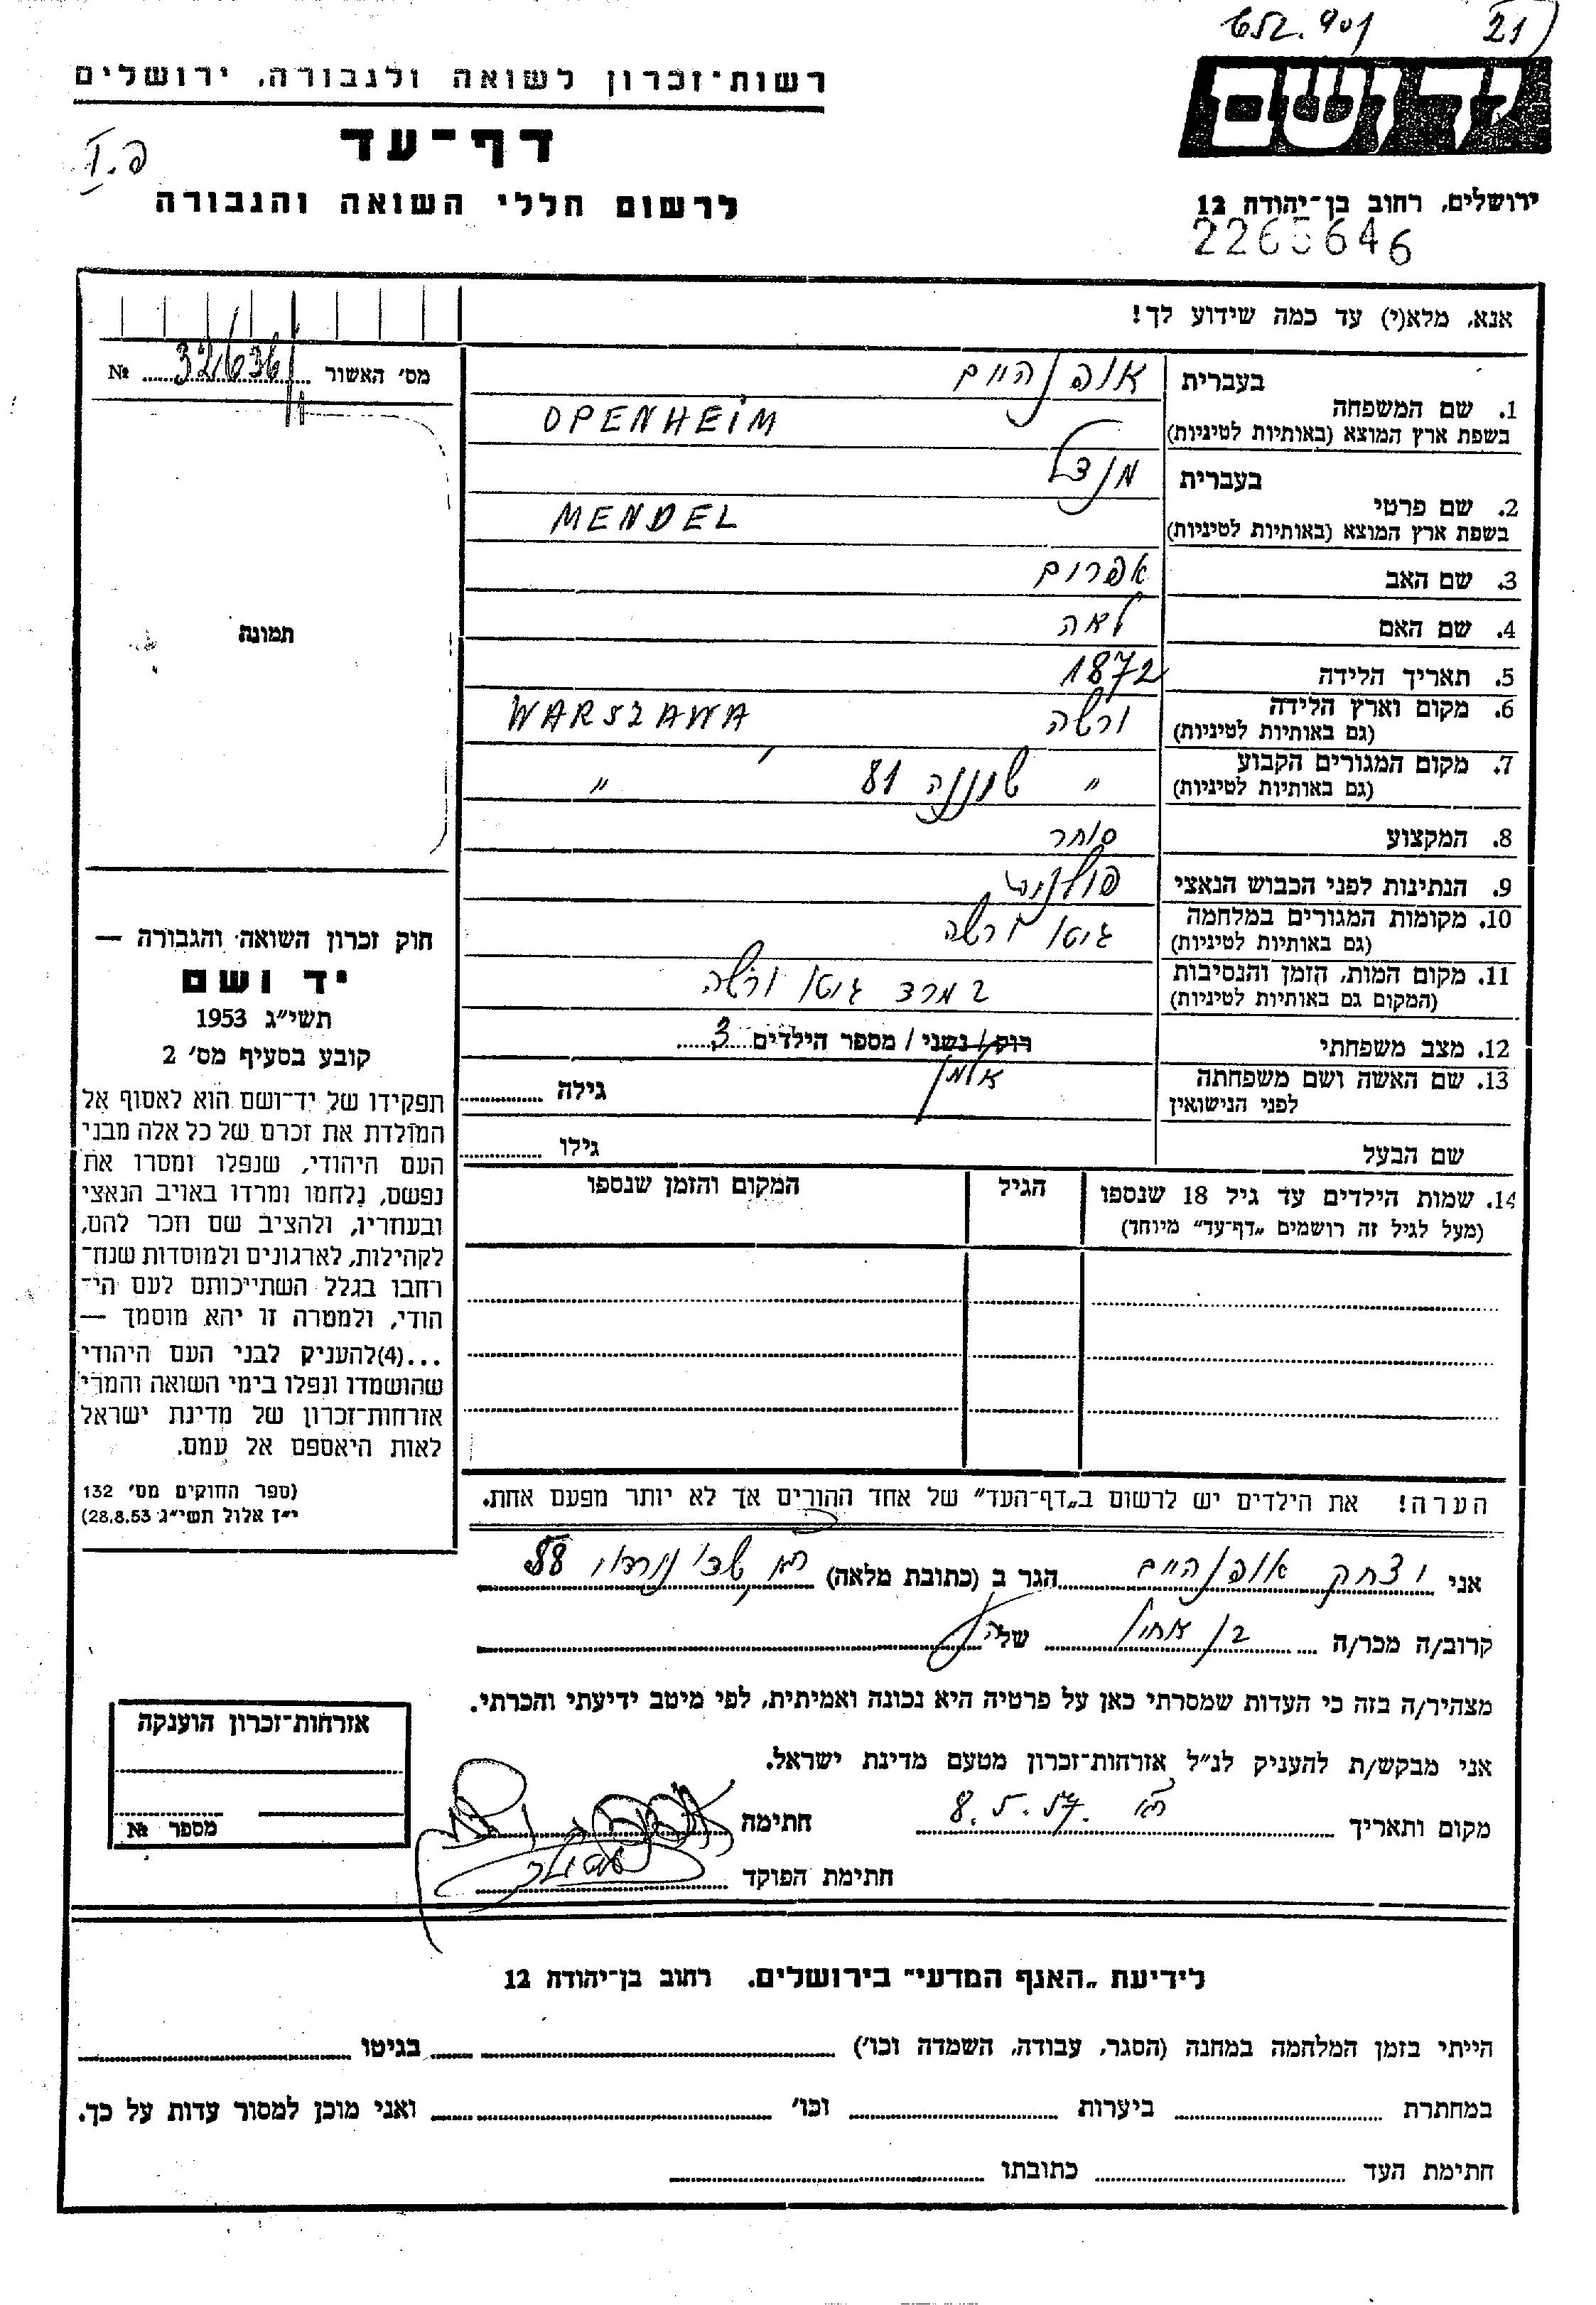 652.901 21
יד ושם
רשות־זכרון לשואה ולגבורה, ירושלים
דף־עד
לרשום חללי השואה והגבורה
ירושלים, רחוב בן־יהודה 12
2265646
אנא, מלא(י) עד כמה שידוע לך!
מס' האשור 32/636 №
1. שם המשפחה בעברית אופנהיים
בשפת ארץ המוצא (באותיות לטיניות) OPENHEIM
2. שם פרטי בעברית מנדל
בשפת ארץ המוצא (באותיות לטיניות) MENDEL
3. שם האב אפרום
4. שם האם לאה
5. תאריך הלידה 1872
6. מקום וארץ הלידה ורשה WARSZAWA
(גם באותיות לטיניות)
7. מקום המגורים הקבוע " 81 "
(גם באותיות לטיניות)
8. המקצוע סוחר
9. הנתינות לפני הכבוש הנאצי פולנית
10. מקומות המגורים במלחמה גיטו ורשה
(גם באותיות לטיניות)
11. מקום המות, הזמן והנסיבות במרד גיטו ורשה
(המקום גם באותיות לטיניות)
12. מצב משפחתי רוק / נשוי / מספר הילדים 3
אלמן
13. שם האשה ושם משפחתה גילה
לפני הנישואין
שם הבעל גילו
14. שמות הילדים עד גיל 18 שנספו הגיל המקום והזמן שנספו
(מעל לגיל זה רושמים „דף־עד" מיוחד)
הערה! את הילדים יש לרשום ב„דף־העד" של אחד ההורים אך לא יותר מפעם אחת.
תמונה
חוק זכרון השואה והגבורה —
יד ושם
תשי"ג 1953
קובע בסעיף מס' 2
תפקידו של יד־ושם הוא לאסוף אל
המולדת את זכרם של כל אלה מבני
העם היהודי, שנפלו ומסרו את
נפשם, נלחמו ומרדו באויב הנאצי
ובעוזריו, ולהציב שם וזכר להם,
לקהילות, לארגונים ולמוסדות שנח־
רחבו בגלל השתייכותם לעם הי־
הודי, ולמטרה זו יהא מוסמך —
...(4)להעניק לבני העם היהודי
שהושמדו ונפלו בימי השואה והמרי
אזרחות־זכרון של מדינת ישראל
לאות היאספם אל עמם.
(ספר החוקים מס' 132
י"ז אלול תשי"ג 28.8.53)
אני יצחק אופנהיים הגר ב (כתובת מלאה) 88
קרוב/ה מכר/ה בן אחיו של
מצהיר/ה בזה כי העדות שמסרתי כאן על פרטיה היא נכונה ואמיתית, לפי מיטב ידיעתי והכרתי.
אני מבקש/ת להעניק לנ"ל אזרחות־זכרון מטעם מדינת ישראל.
מקום ותאריך 8.5.57 חתימה
חתימת הפוקד
אזרחות־זכרון הוענקה
מספר №
לידיעת „האנף המדעי" בירושלים. רחוב בן־יהודה 12
הייתי בזמן המלחמה במחנה (הסגר, עבודה, השמדה וכו') בגיטו
במחתרת ביערות וכו' ואני מוכן למסור עדות על כך.
חתימת העד כתובתו